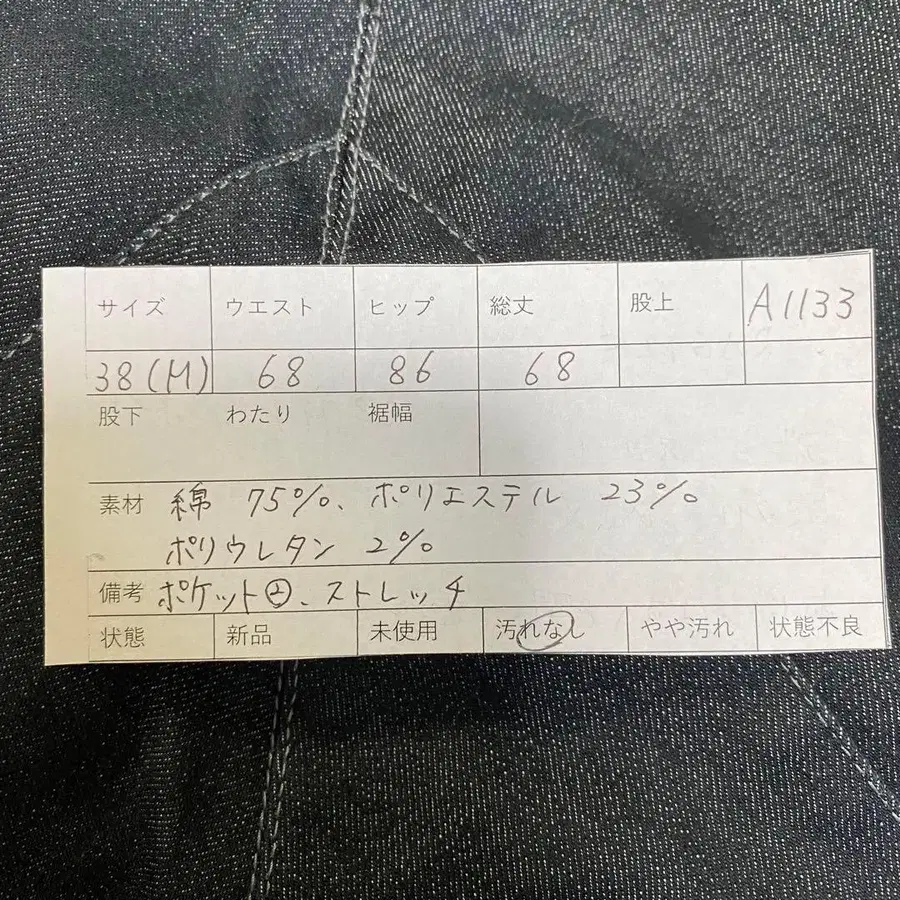 サイズ ウエスト ヒップ 総丈 股上 A1133
38(M) 68 86 68
股下 わたり 裾幅
素材 綿 75%、ポリエステル 23%
ポリウレタン 2%
備考 ポケット、ストレッチ
状態 新品 未使用 汚れなし やや汚れ 状態不良